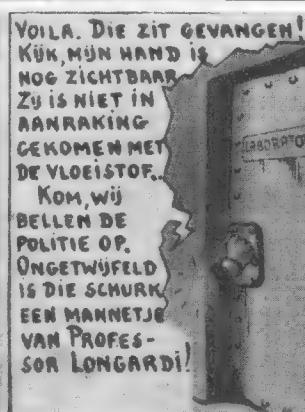 VOILA. DIE ZIT GEVANGEN!
KIJK, MIJN HAND IS
NOG ZICHTBAAR
ZIJ IS NIET IN
AANRAKING
GEKOMEN MET
DE VLOEISTOF..
KOM, WIJ
BELLEN DE
POLITIE OP.
ONGETWIJFELD
IS DIE SCHURK
EEN MANNETJE
VAN PROFES-
SOR LONGARDI!
LABORATO